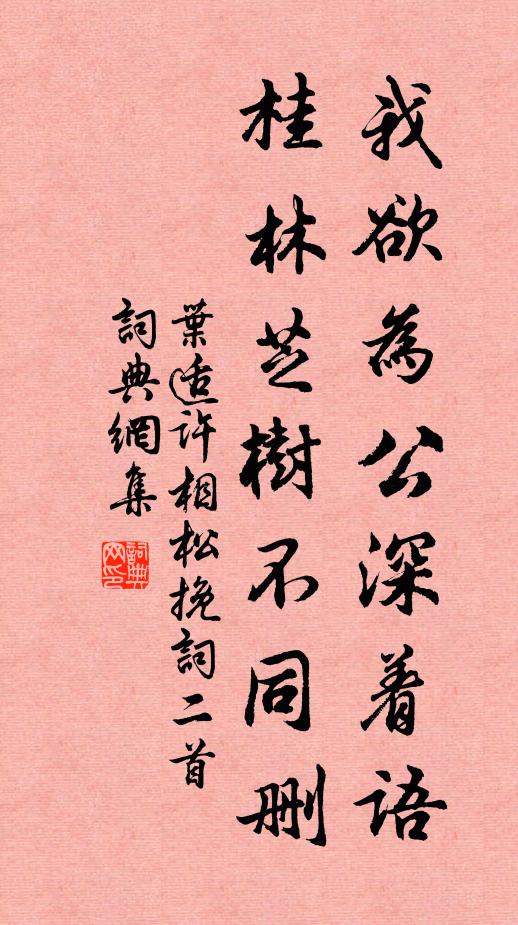 我欲為公深着語
桂林芝樹不同刪
葉适許相松挽詞二首
詞典網集
詞典
网印